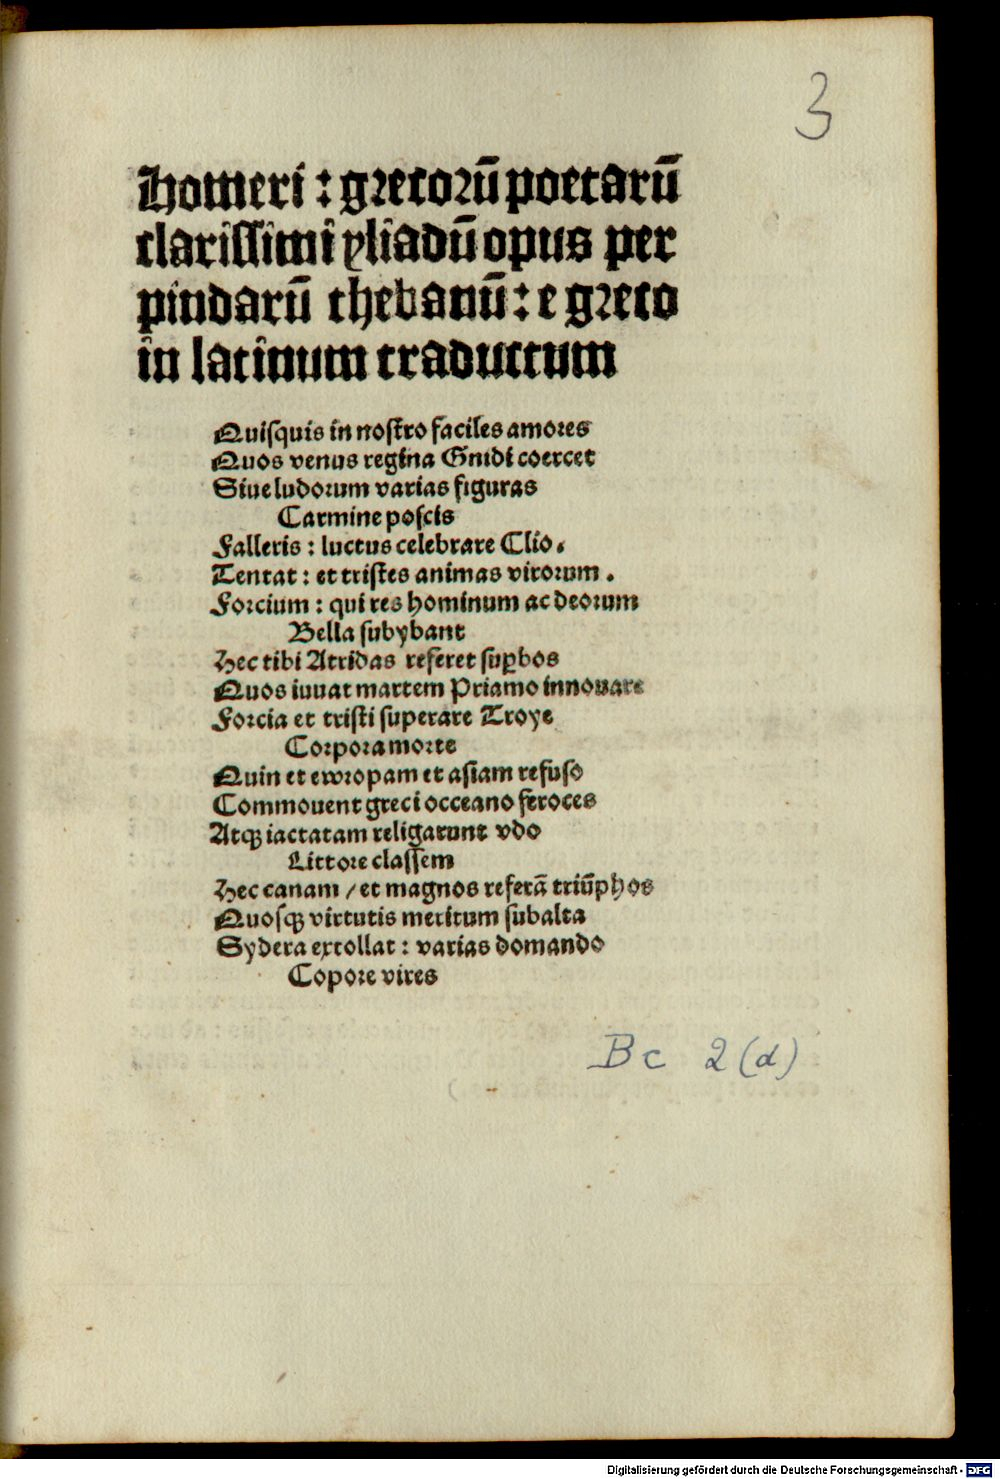 3
Homeri : grecorū poetarū
clarissimi yliadū opus per
pindarū thebanū : e greco
in latinum traductum
Quisquis in nostro faciles amores
Quos venus regina Gnidi coercet
Siue ludorum varias figuras
Carmine poscis
Falleris : luctus celebrare Clio .
Tentat : et tristes animas virorum .
Forcium : qui res hominum ac deorum
Bella subybant
Hec tibi Atridas referet suꝑbos
Quos iuuat martem Priamo innouare
Forcia et tristi superare Troye
Corpora morte
Quin et ewropam et asiam refuso
Commouent greci occeano feroces
Atqꝫ iactatam religarunt vdo
Littore classem
Hec canam / et magnos referā triūphos
Quosqꝫ virtutis meritum subalta
Sydera extollat : varias domando
Copore vires
Bc 2(d)
Digitalisierung gefördert durch die Deutsche Forschungsgemeinschaft - DFG